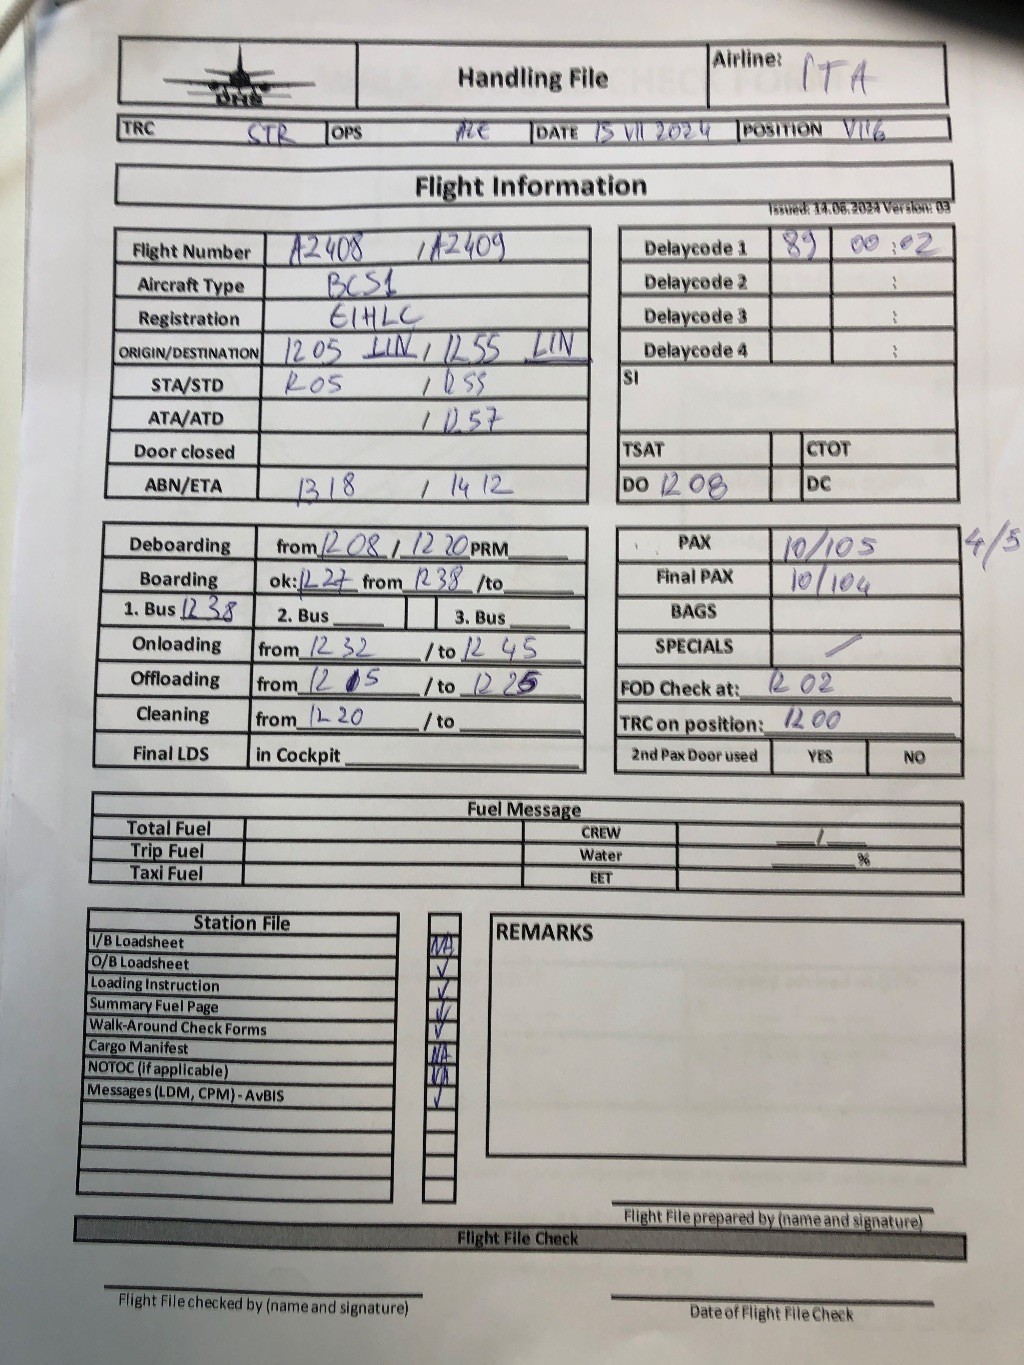 DHS Handling File Airline: ITA
TRC STR OPS ALE DATE 15 VII 2024 POSITION V116
Flight Information
Issued: 14.06.2024 Version: 03
Flight Number AZ408 / AZ409
Aircraft Type BCS1
Registration EIHLC
ORIGIN/DESTINATION 12 05 LIN / 12 55 LIN
STA/STD 12 05 / 12 55
ATA/ATD / 12 57
Door closed
ABN/ETA 13 18 / 14 12
Delaycode 1 89 00:02
Delaycode 2 :
Delaycode 3 :
Delaycode 4 :
SI
TSAT CTOT
DO 12 08 DC
Deboarding from 12 08 / 12 20 PRM
Boarding ok: 12 27 from 12 38 /to
1. Bus 12 38 2. Bus 3. Bus
Onloading from 12 32 / to 12 45
Offloading from 12 15 / to 12 25
Cleaning from 12 20 / to
Final LDS in Cockpit
PAX 10/105 4/5
Final PAX 10/104
BAGS
SPECIALS /
FOD Check at: 12 02
TRC on position: 12 00
2nd Pax Door used YES NO
Fuel Message
Total Fuel CREW /
Trip Fuel Water %
Taxi Fuel EET
Station File
I/B Loadsheet NA
O/B Loadsheet ✓
Loading Instruction ✓
Summary Fuel Page ✓
Walk-Around Check Forms ✓
Cargo Manifest NA
NOTOC (if applicable) NA
Messages (LDM, CPM) - AvBIS ✓
REMARKS
Flight File prepared by (name and signature)
Flight File Check
Flight File checked by (name and signature)
Date of Flight File Check